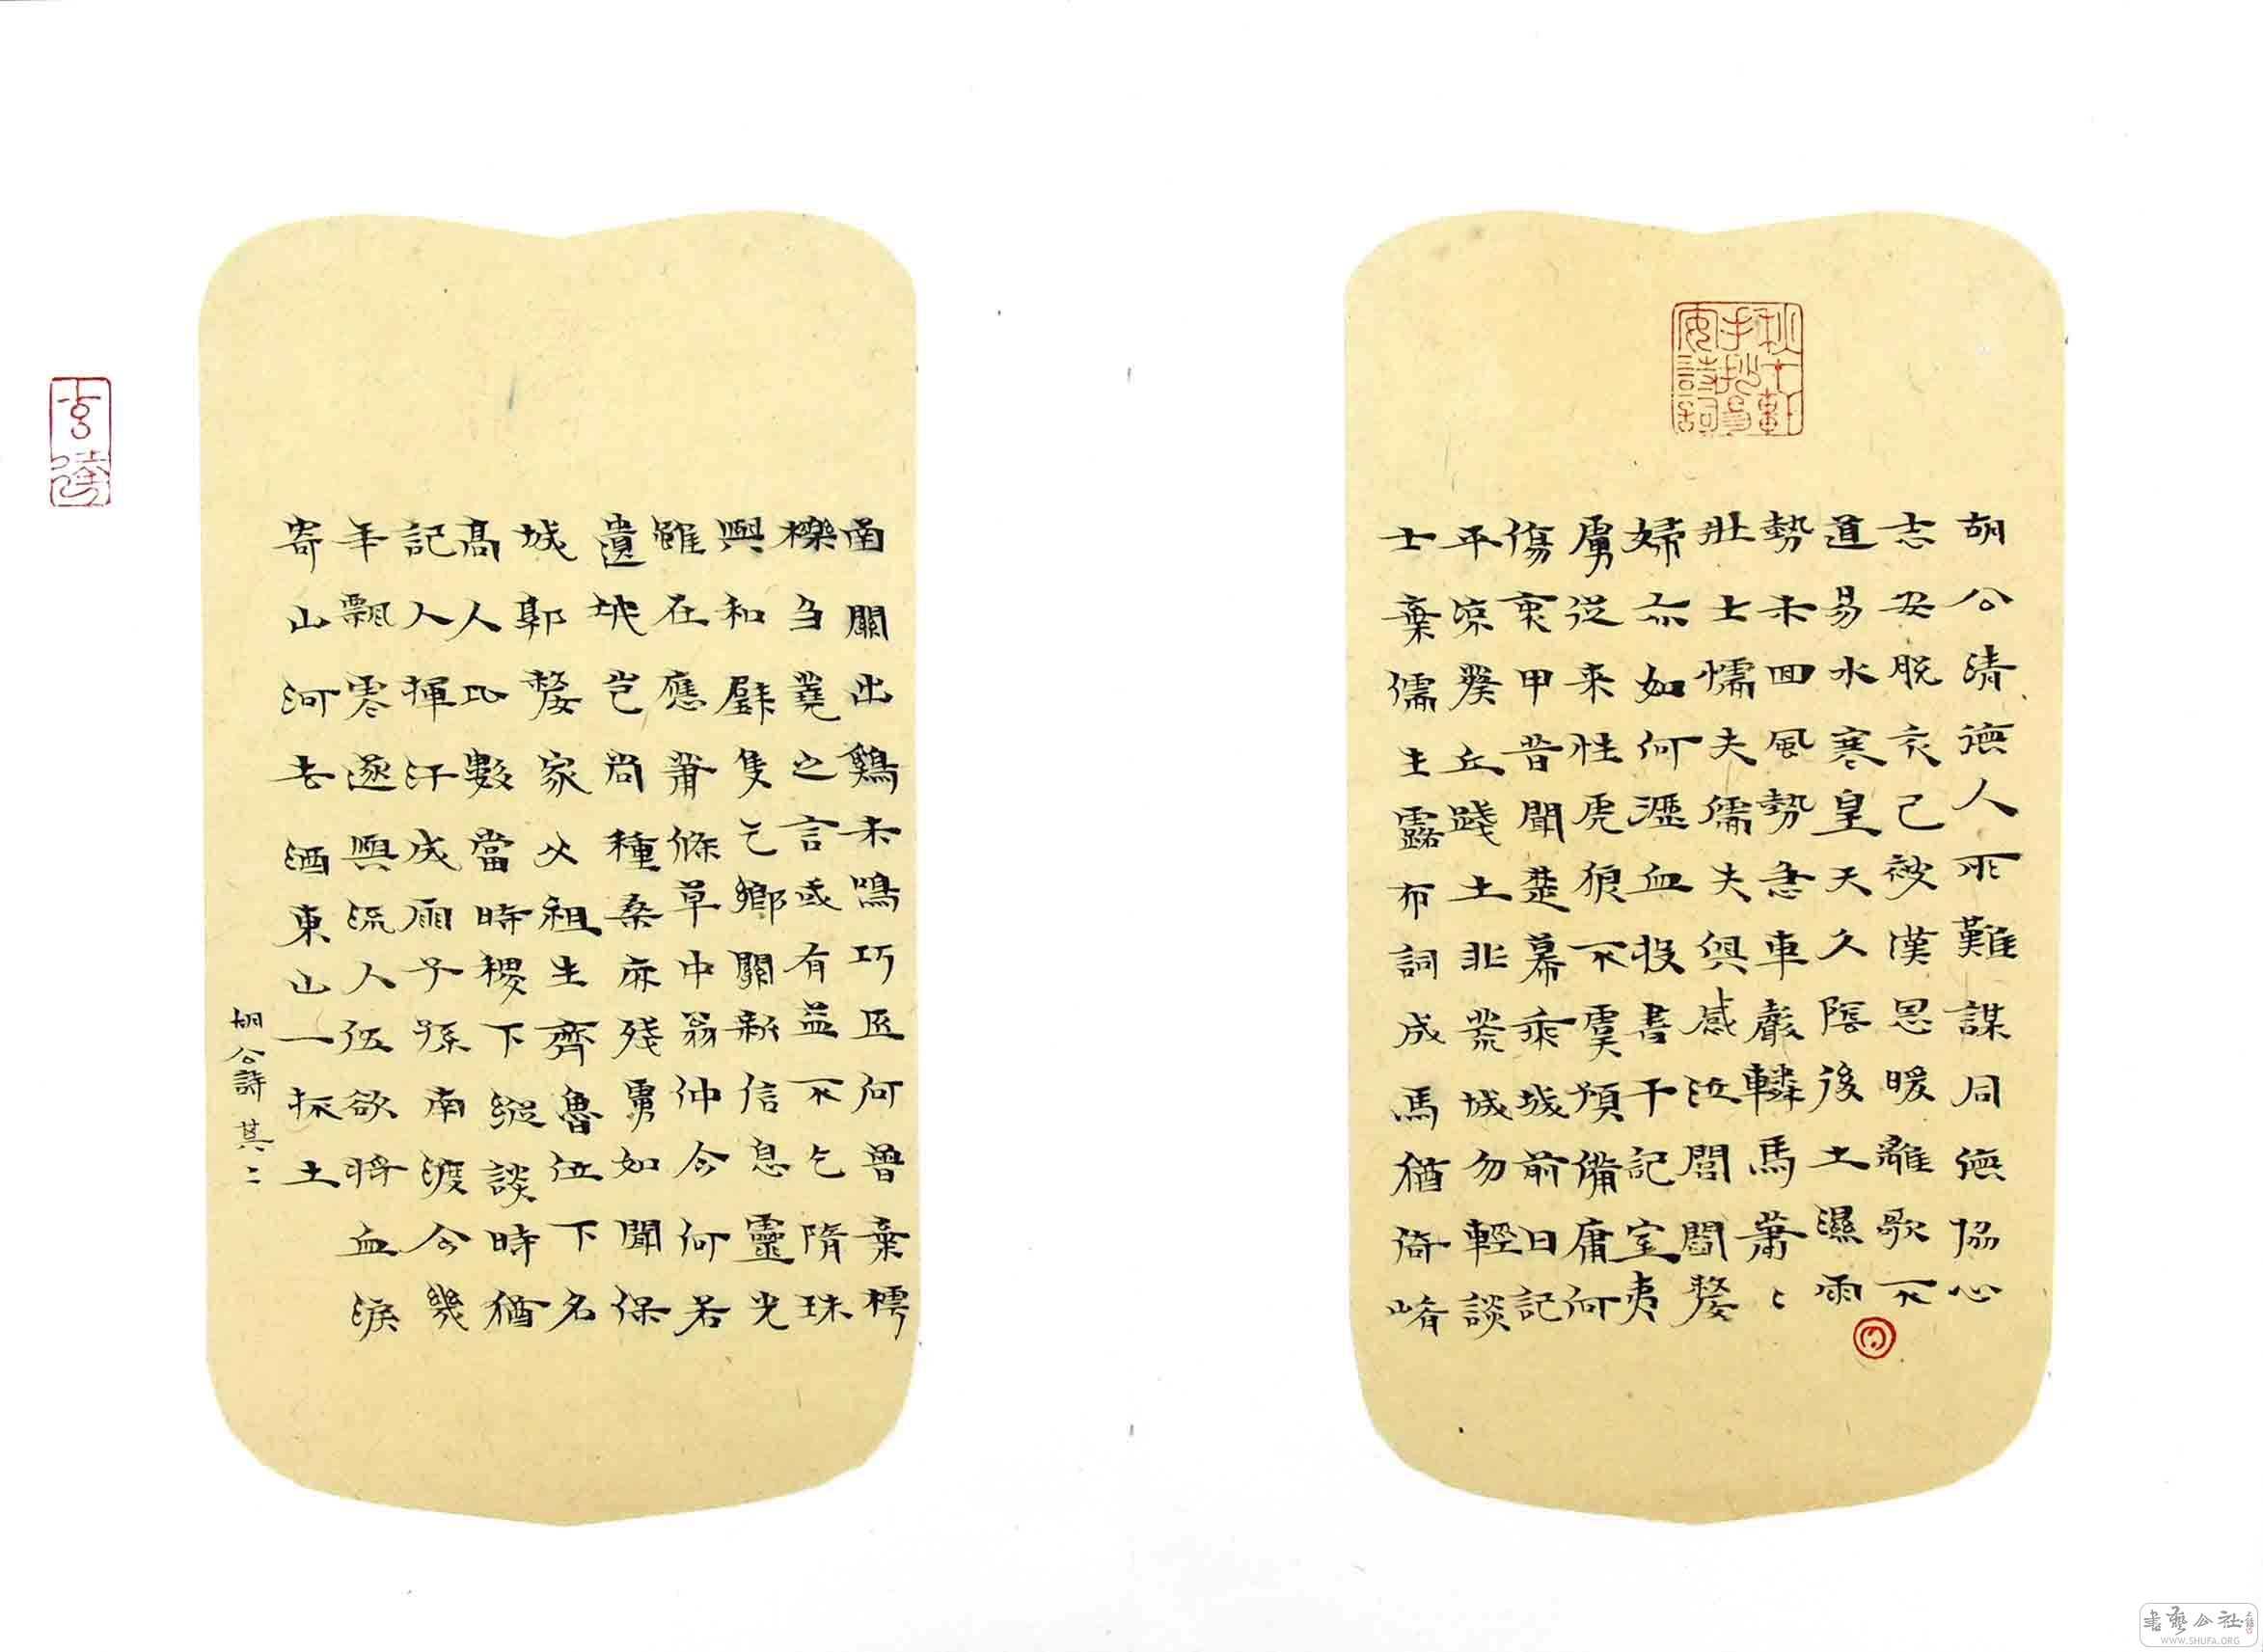 秋千軒手抄易安詩詞
胡公清德人所難謀同德協心
志安脫衣已被漢恩暖離歌不
道易水寒皇天久陰後土濕雨
勢未回風勢急車聲轔馬蕭〻
壯士懦夫儒夫俱感泣閭閻嫠
婦亦如何瀝血投書干記室夷
虜從来性虎狼不虞預備庸何
傷衷甲昔聞楚幕乘城前日記
平涼葵丘踐土非荒城勿輕談
士棄儒生露布詞成馬猶倚崤
函關出鷄未鳴巧匠何曾棄樗
櫟芻蕘之言或有益不乞隋珠
與和璧隻乞鄉關新信息靈光
雖在應蕭條草中翁仲今何若
遺氓豈尚種桑麻殘虜如聞保
城郭嫠家父祖生齊魯位下名
高人比數當時稷下縱談時猶
記人揮汗成雨子孫南渡今幾
年飄零遂與流人伍欲將血淚
寄山河去洒東山一抔土
胡公詩其二
書藝公社
WWW.SHUFA.ORG